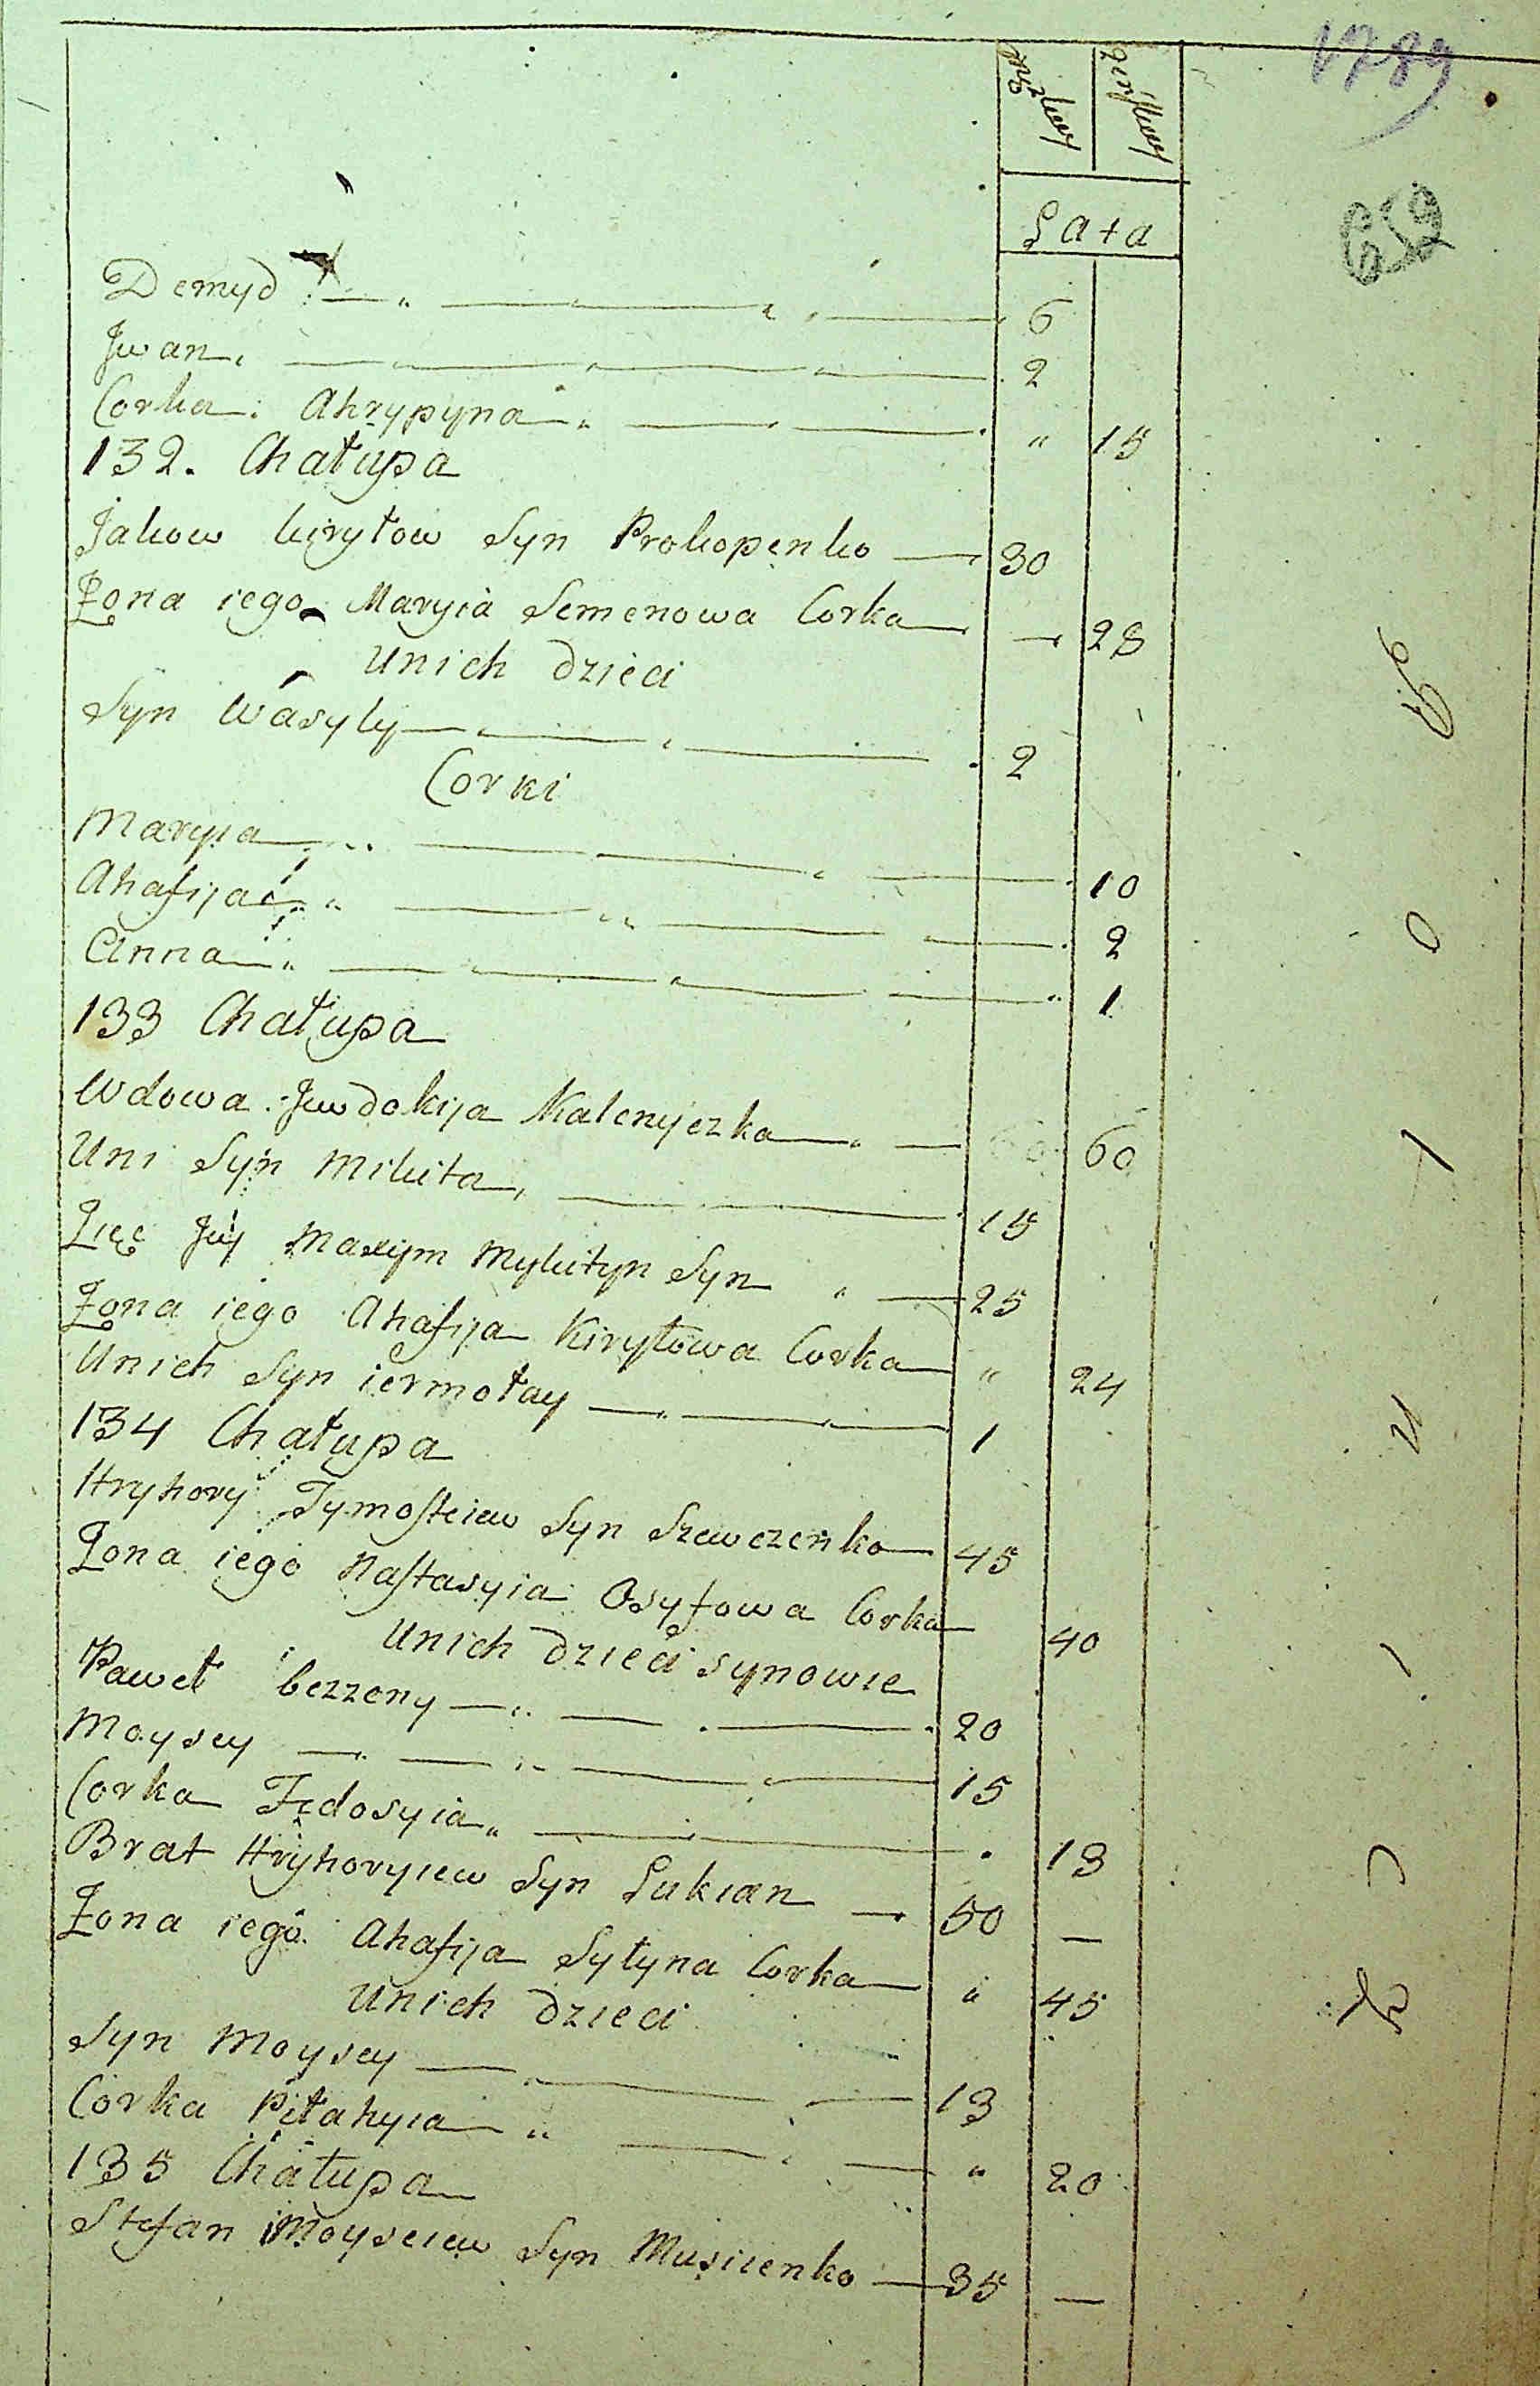 1789
męzkey żeńskey
Łata
659
Demyd 6
Jwan 2
Corka Ahrypyna " 15
132. Chałupa
Jakow kiryłow Syn Prokopenko 30
Żona iego Maryia Semenowa Corka — 28
Unich dzieci
Syn Wasyly 2
Corki
Maryia 10
Ahafija 2
Anna 1
133 Chałupa
Wdowa Jwdokija Kalenyczka 60
Uni Syn Mikita 15
Zięć Jey Maxym Mykityn Syn 25
Żona iego Ahafija Kiryłowa Corka " 24
Unich Syn iermołay 1
134 Chałupa
Hryhory Tymofteiew Syn Szewczenko 45
Żona iego Nastasyia Osyfowa Corka 40
Unich dzieci synowie
Paweł bezzeny 20
Moysey 15
Corka Fedosyia 13
Brat Hryhoryiew Syn Łukian 50 —
Żona iego Ahafija Syłyna Corka " 45
Unich dzieci
Syn Moysey 13
Corka Pełahyia " 20
135 Chałupa
Stefan Moyseiew Syn Musiienko 35 —